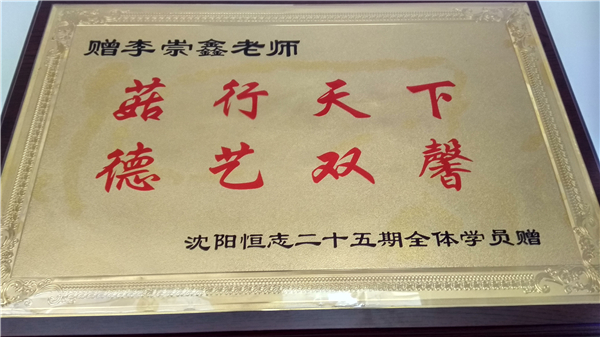 赠李崇鑫老师
菇行天下
德艺双馨
沈阳恒志二十五期全体学员赠